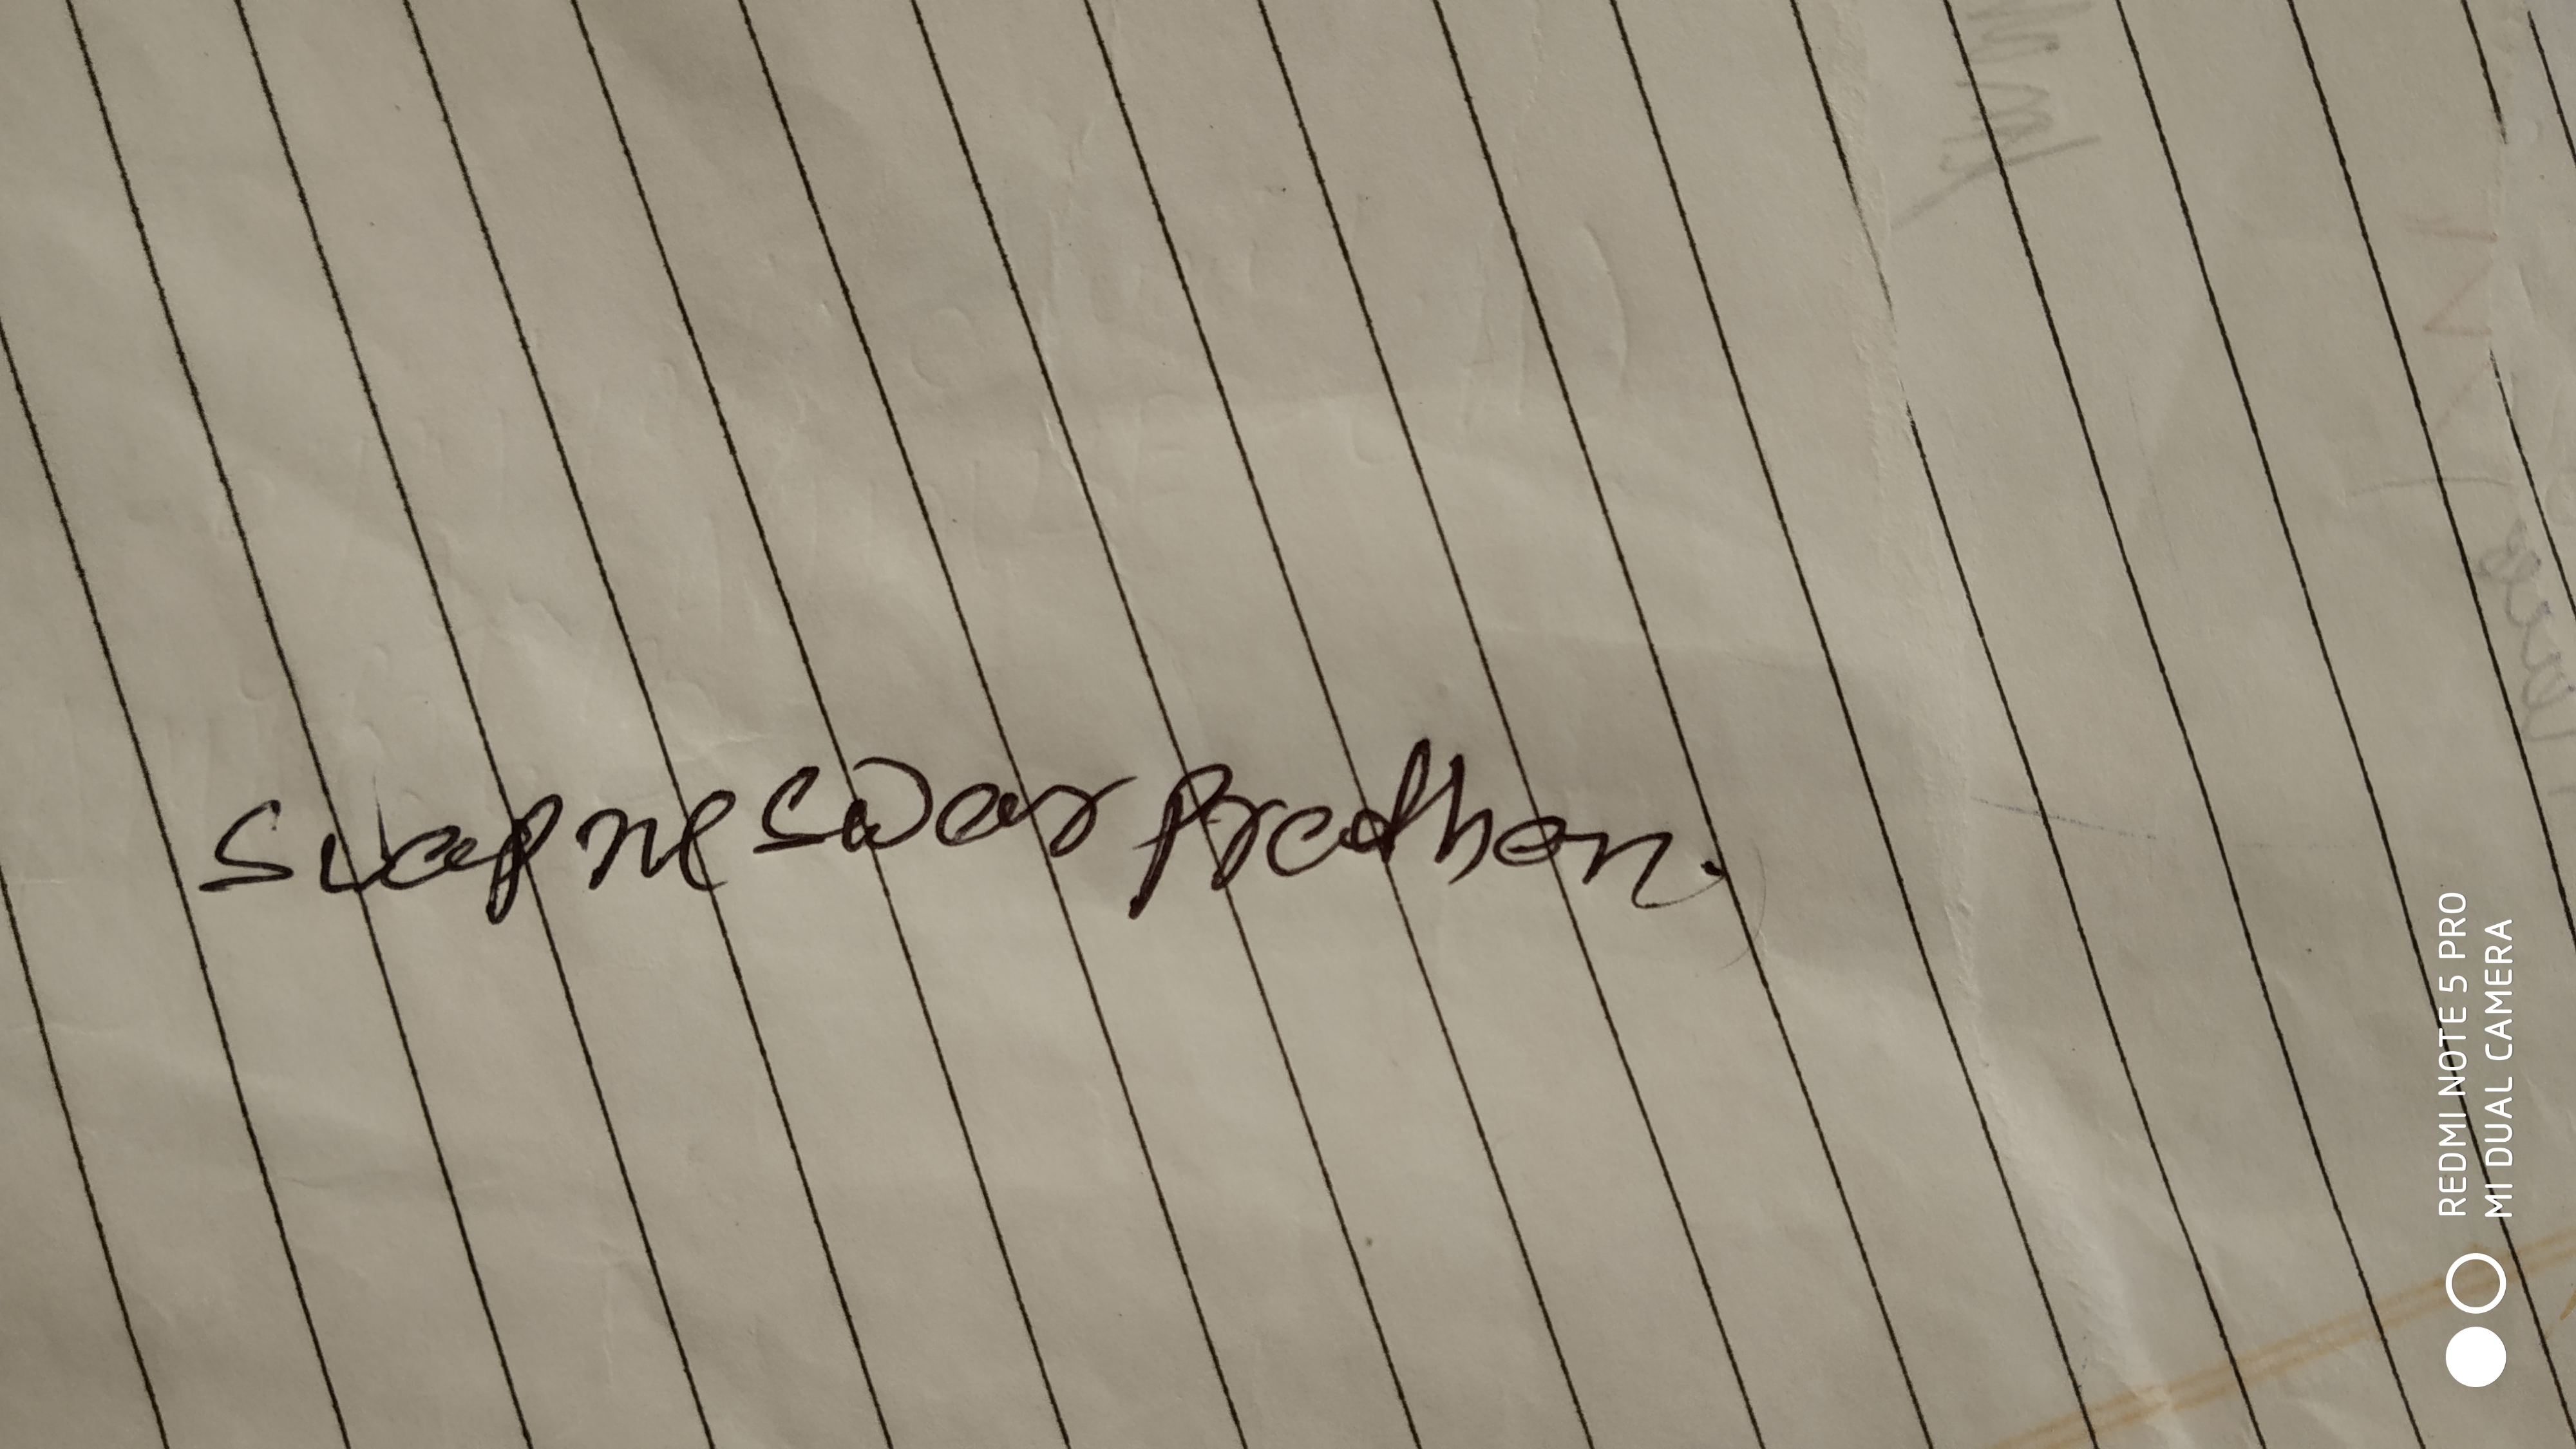 Swapneswar Pradhan.
REDMI NOTE 5 PRO
MI DUAL CAMERA